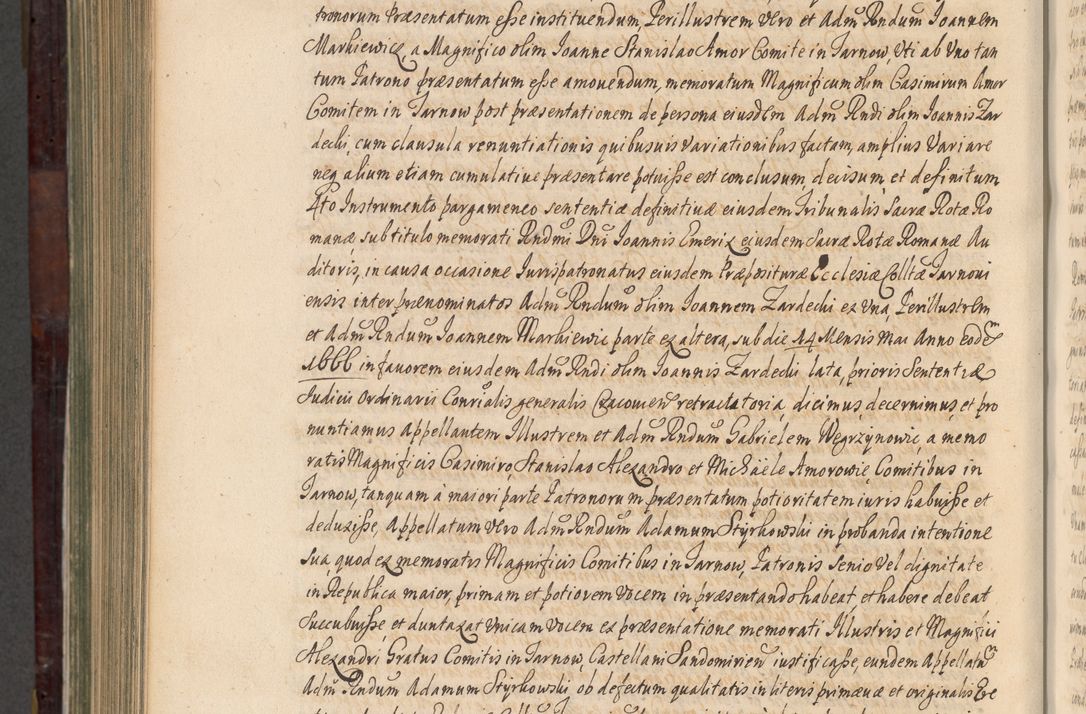 tronorum Præsentatum esse instituendum, Perillustrem Vero et Adm̃ Rndum Joannem
Markiewicz, a Magnifico olim Joanne Stanislao Amor Comite in Tarnow, Uti ab Uno tan
tum Patrono præsentatum esse amouendum, memoratum Magnificum olim Casimirum Amor
Comitem in Tarnow post præsentationem de persona eiusdem Adm̃ Rndi olim Joannis Zar
dechi, cum clausula renuntiationis quibusuis Variationibus factam, amplius Variare
neq alium etiam cumulatiue præsentare potuisse est conclusum, decisum et definitum
4to Instrumento pargameneo sententiæ definitiuæ eiusdem Tribunalis Sacræ Rotæ Ro
manæ sub titulo memorati Rndm̃i Dn̄i Joannis Emerix eiusdem Sacræ Rotæ Romanæ Au
ditoris, in causa occasione Jurispatronatus eiusdem Præposituræ Ecclesiæ Colltæ Tarnoui
ensis inter prænominatos Adm̃ Rndum olim Joannem Zardechi ex una, Perillustrem
et Adm̃ Rndum Joannem Markiewic parte ex altera, sub die 14 Mensis Mai Anno eodẽ
1666 in fauorem eiusdem Adm̃ Rndi olim Joannis Zardechi lata, prioris Sententiæ
Judicii Ordinarii Conr̃ialis generalis Cracouien̄ retractatoria, dicimus, decernimus, et pro
nuntiamus Appellantem Illustrem et Adm̃ Rndum Gabrielem Wegrzynowic, a memo
ratis Magnificis Casimiro, Stanislao Alexandro et Michaële Amorowie Comitibus in
Tarnow, tanquam à maiori parte Patronorum præsentatum potioritatem iuris habuisse et
deduxisse, Appellatum Vero Adm̃ Rndum Adamum Styrkowski in probanda intentione
sua quod ex memoratis Magnificis Comitibus in Tarnow, Patronis Senio Vel dignitate
in Republica maior, primam et potiorem Vocem in præsentando habeat, et habere debeat
Succubuisse, et duntaxat Unicam Vocem ex præsentatione memorati Illustris et Magnifici
Alexandri Gratus Comitis in Tarnow, Castellani Sandomirien̄ iustificasse, eundem Appellatũ
Adm̃ Rndum Adamum Styrkowski, ob defectum qualitatis in literis primæuæ et originalis Ere